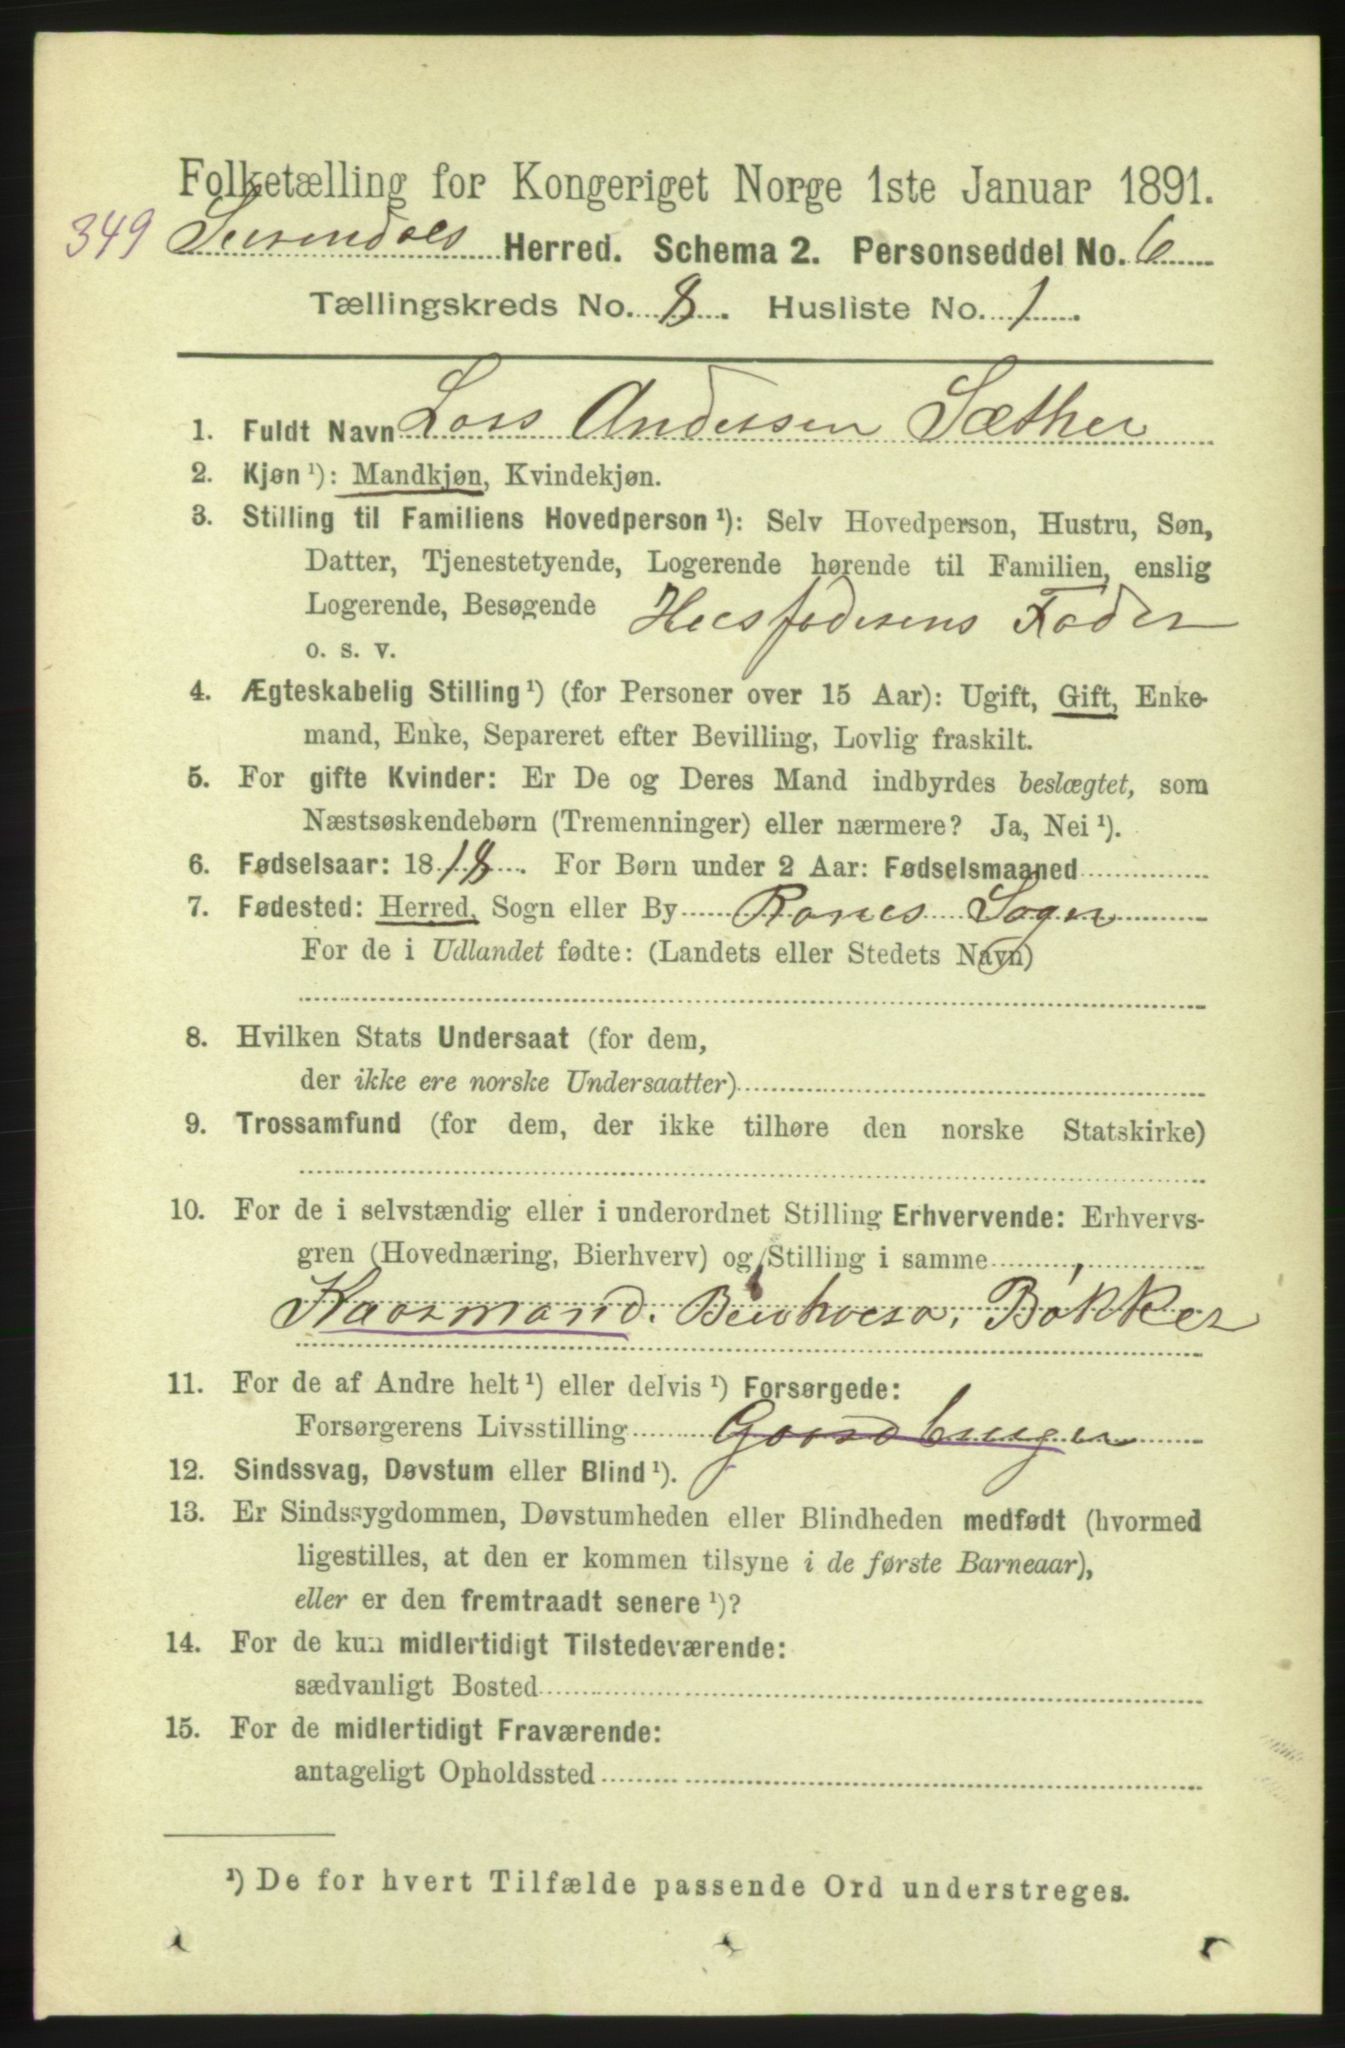 Folketælling for Kongeriget Norge 1ste Januar 1891.
349 Surendals Herred. Schema 2. Personseddel No. 6
Tællingskreds No. 8. Husliste No. 1.
1. Fuldt Navn Lars Anderssen Sæther
2. Kjøn ¹): Mandkjøn, Kvindekjøn.
3. Stilling til Familiens Hovedperson ¹): Selv Hovedperson, Hustru, Søn,
Datter, Tjenestetyende, Logerende hørende til Familien, enslig
Logerende, Besøgende Husfaderens Fader
o. s. v.
4. Ægteskabelig Stilling ¹) (for Personer over 15 Aar): Ugift, Gift, Enke-
mand, Enke, Separeret efter Bevilling, Lovlig fraskilt.
5. For gifte Kvinder: Er De og Deres Mand indbyrdes beslægtet, som
Næstsøskendebørn (Tremenninger) eller nærmere? Ja, Nei ¹).
6. Fødselsaar: 1818. For Børn under 2 Aar: Fødselsmaaned
7. Fødested: Herred, Sogn eller By Ranes Sogn
For de i Udlandet fødte: (Landets eller Stedets Navn)
8. Hvilken Stats Undersaat (for dem,
der ikke ere norske Undersaatter)
9. Trossamfund (for dem, der ikke tilhøre den norske Statskirke)
10. For de i selvstændig eller i underordnet Stilling Erhvervende: Erhvervs-
gren (Hovednæring, Bierhverv) og Stilling i samme
Kaarmand. Bøkker
11. For de af Andre helt ¹) eller delvis ¹) Forsørgede:
Forsørgerens Livsstilling Gaardbruger
12. Sindssvag, Døvstum eller Blind ¹).
13. Er Sindssygdommen, Døvstumheden eller Blindheden medfødt (hvormed
ligestilles, at den er kommen tilsyne i de første Barneaar),
eller er den fremtraadt senere ¹)?
14. For de kun midlertidigt Tilstedeværende:
sædvanligt Bosted
15. For de midlertidigt Fraværende:
antageligt Opholdssted
¹) De for hvert Tilfælde passende Ord understreges.